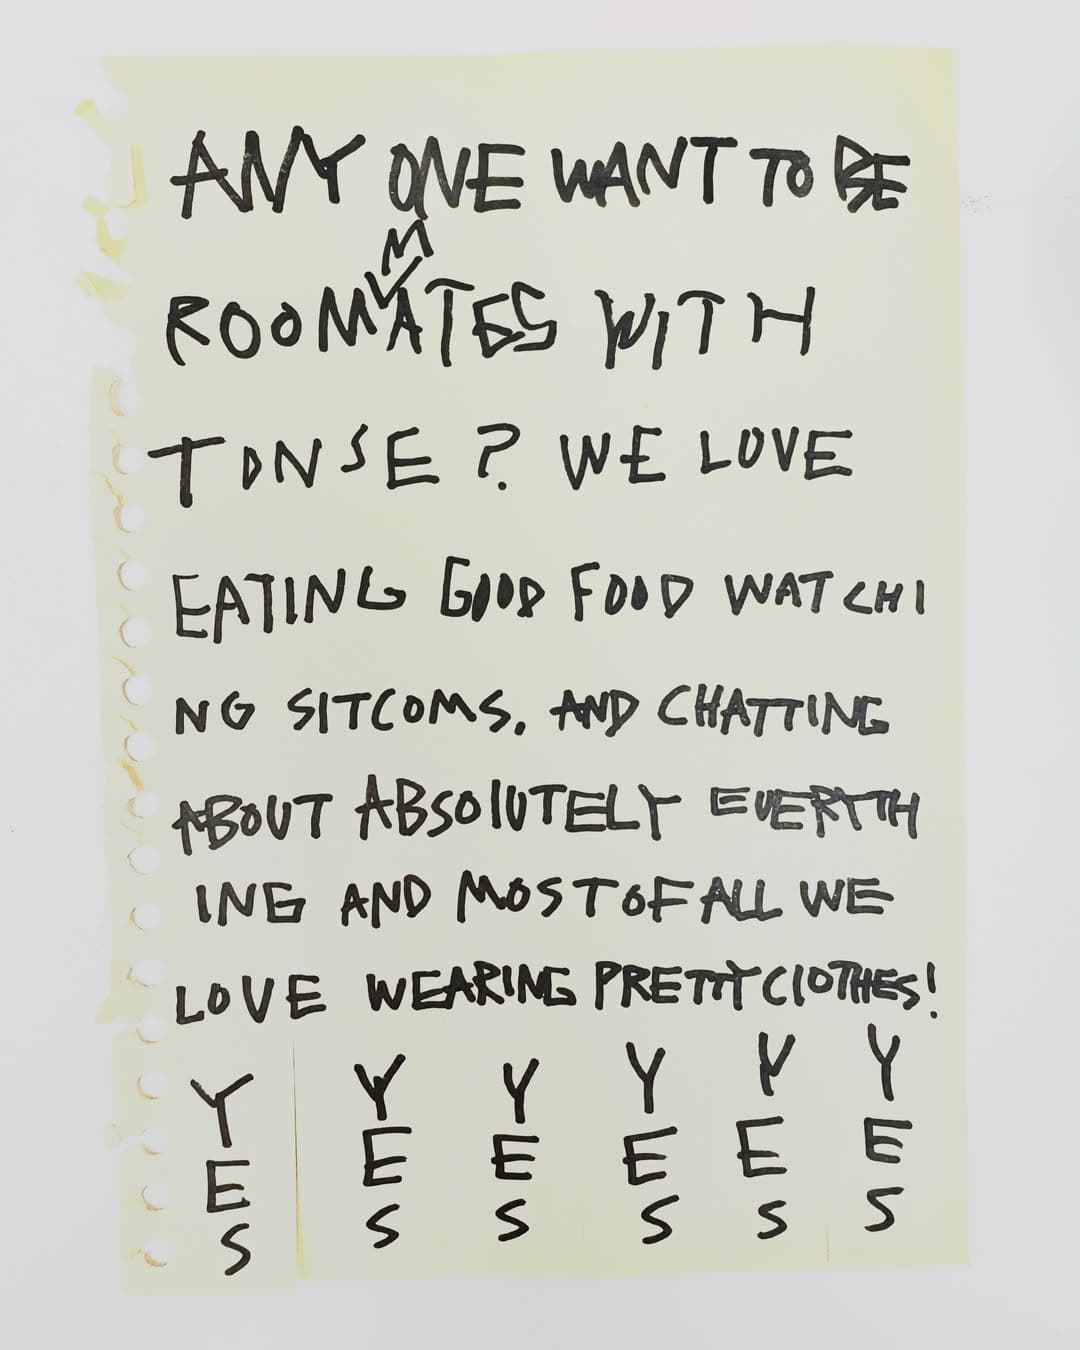 ANY ONE WANT TO BE
ROOMMATES WITH
TONSE? WE LOVE
EATING GOOD FOOD WATCHI
NG SITCOMS, AND CHATTING
ABOUT ABSOLUTELY EVERYTH
ING AND MOST OF ALL WE
LOVE WEARING PRETTY CLOTHES!
YES YES YES YES YES YES